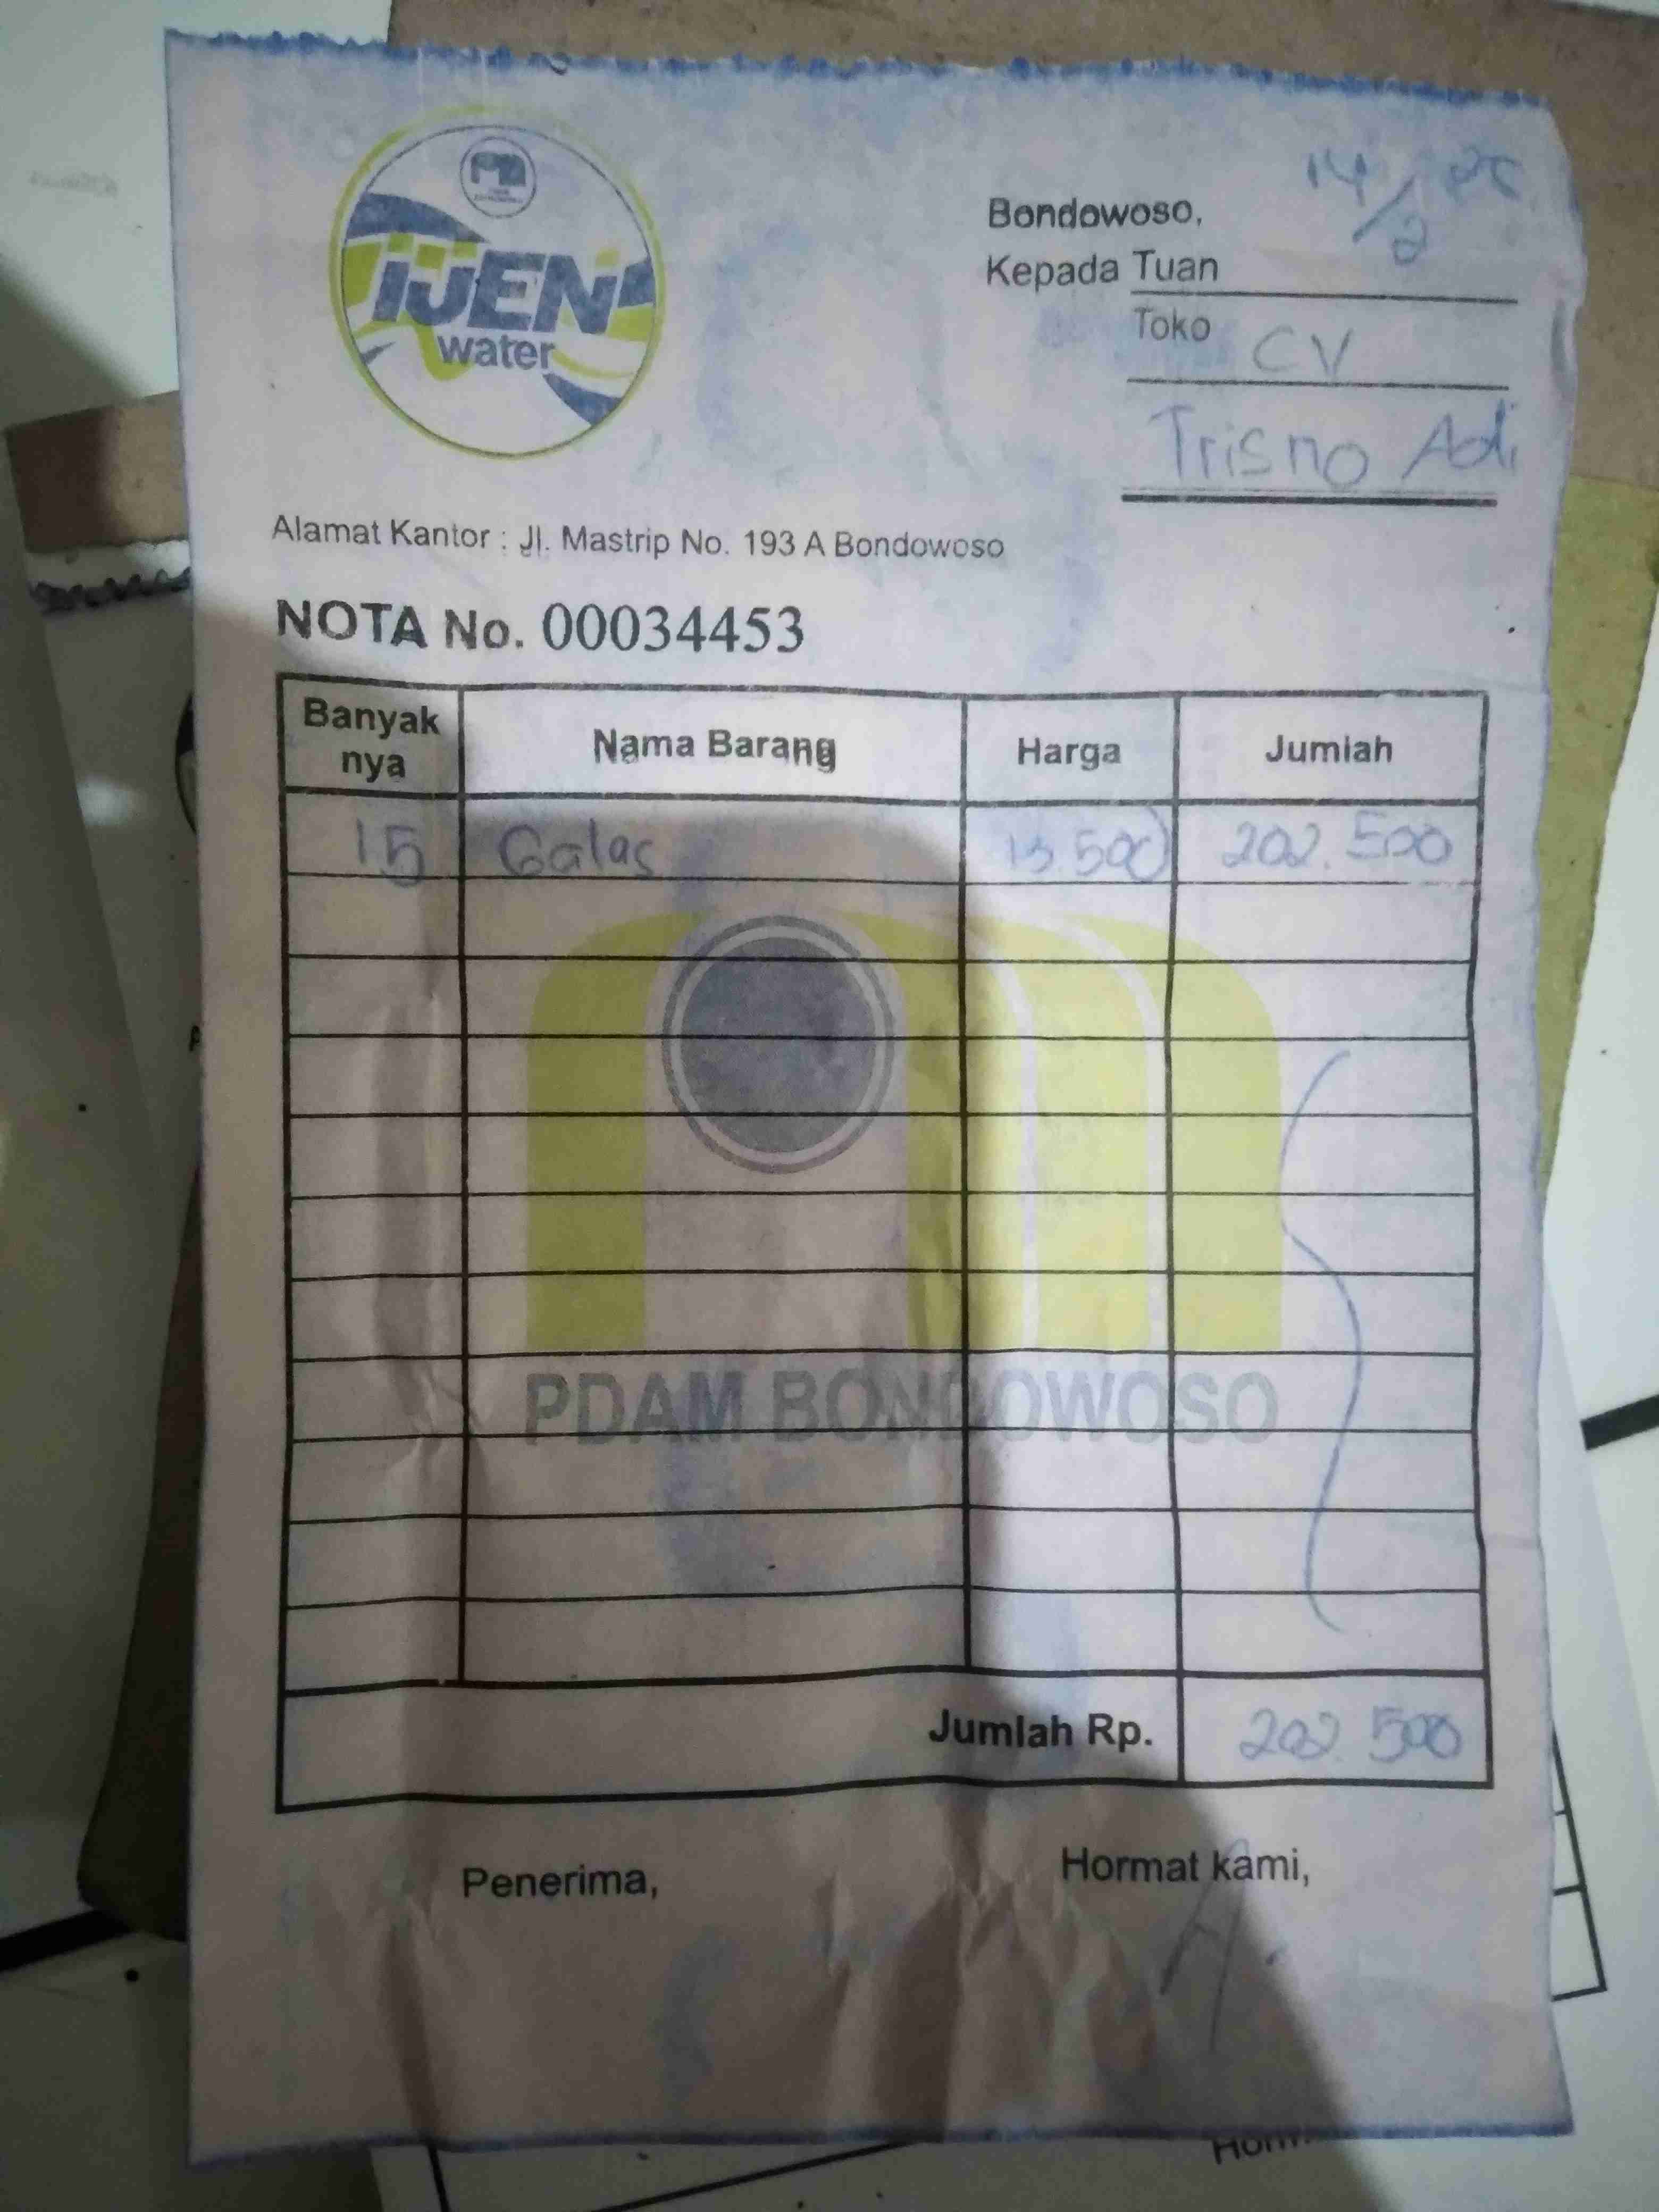 iJEN
water
Bondowoso, 14/2
Kepada Tuan
Toko CV
Trisno Adi
Alamat Kantor : Jl. Mastrip No. 193 A Bondowoso
NOTA No. 00034453
Banyak nya Nama Barang Harga Jumlah
15 Gelas 13.500 202.500
PDAM BONDOWOSO
Jumlah Rp. 202.500
Penerima, Hormat kami,